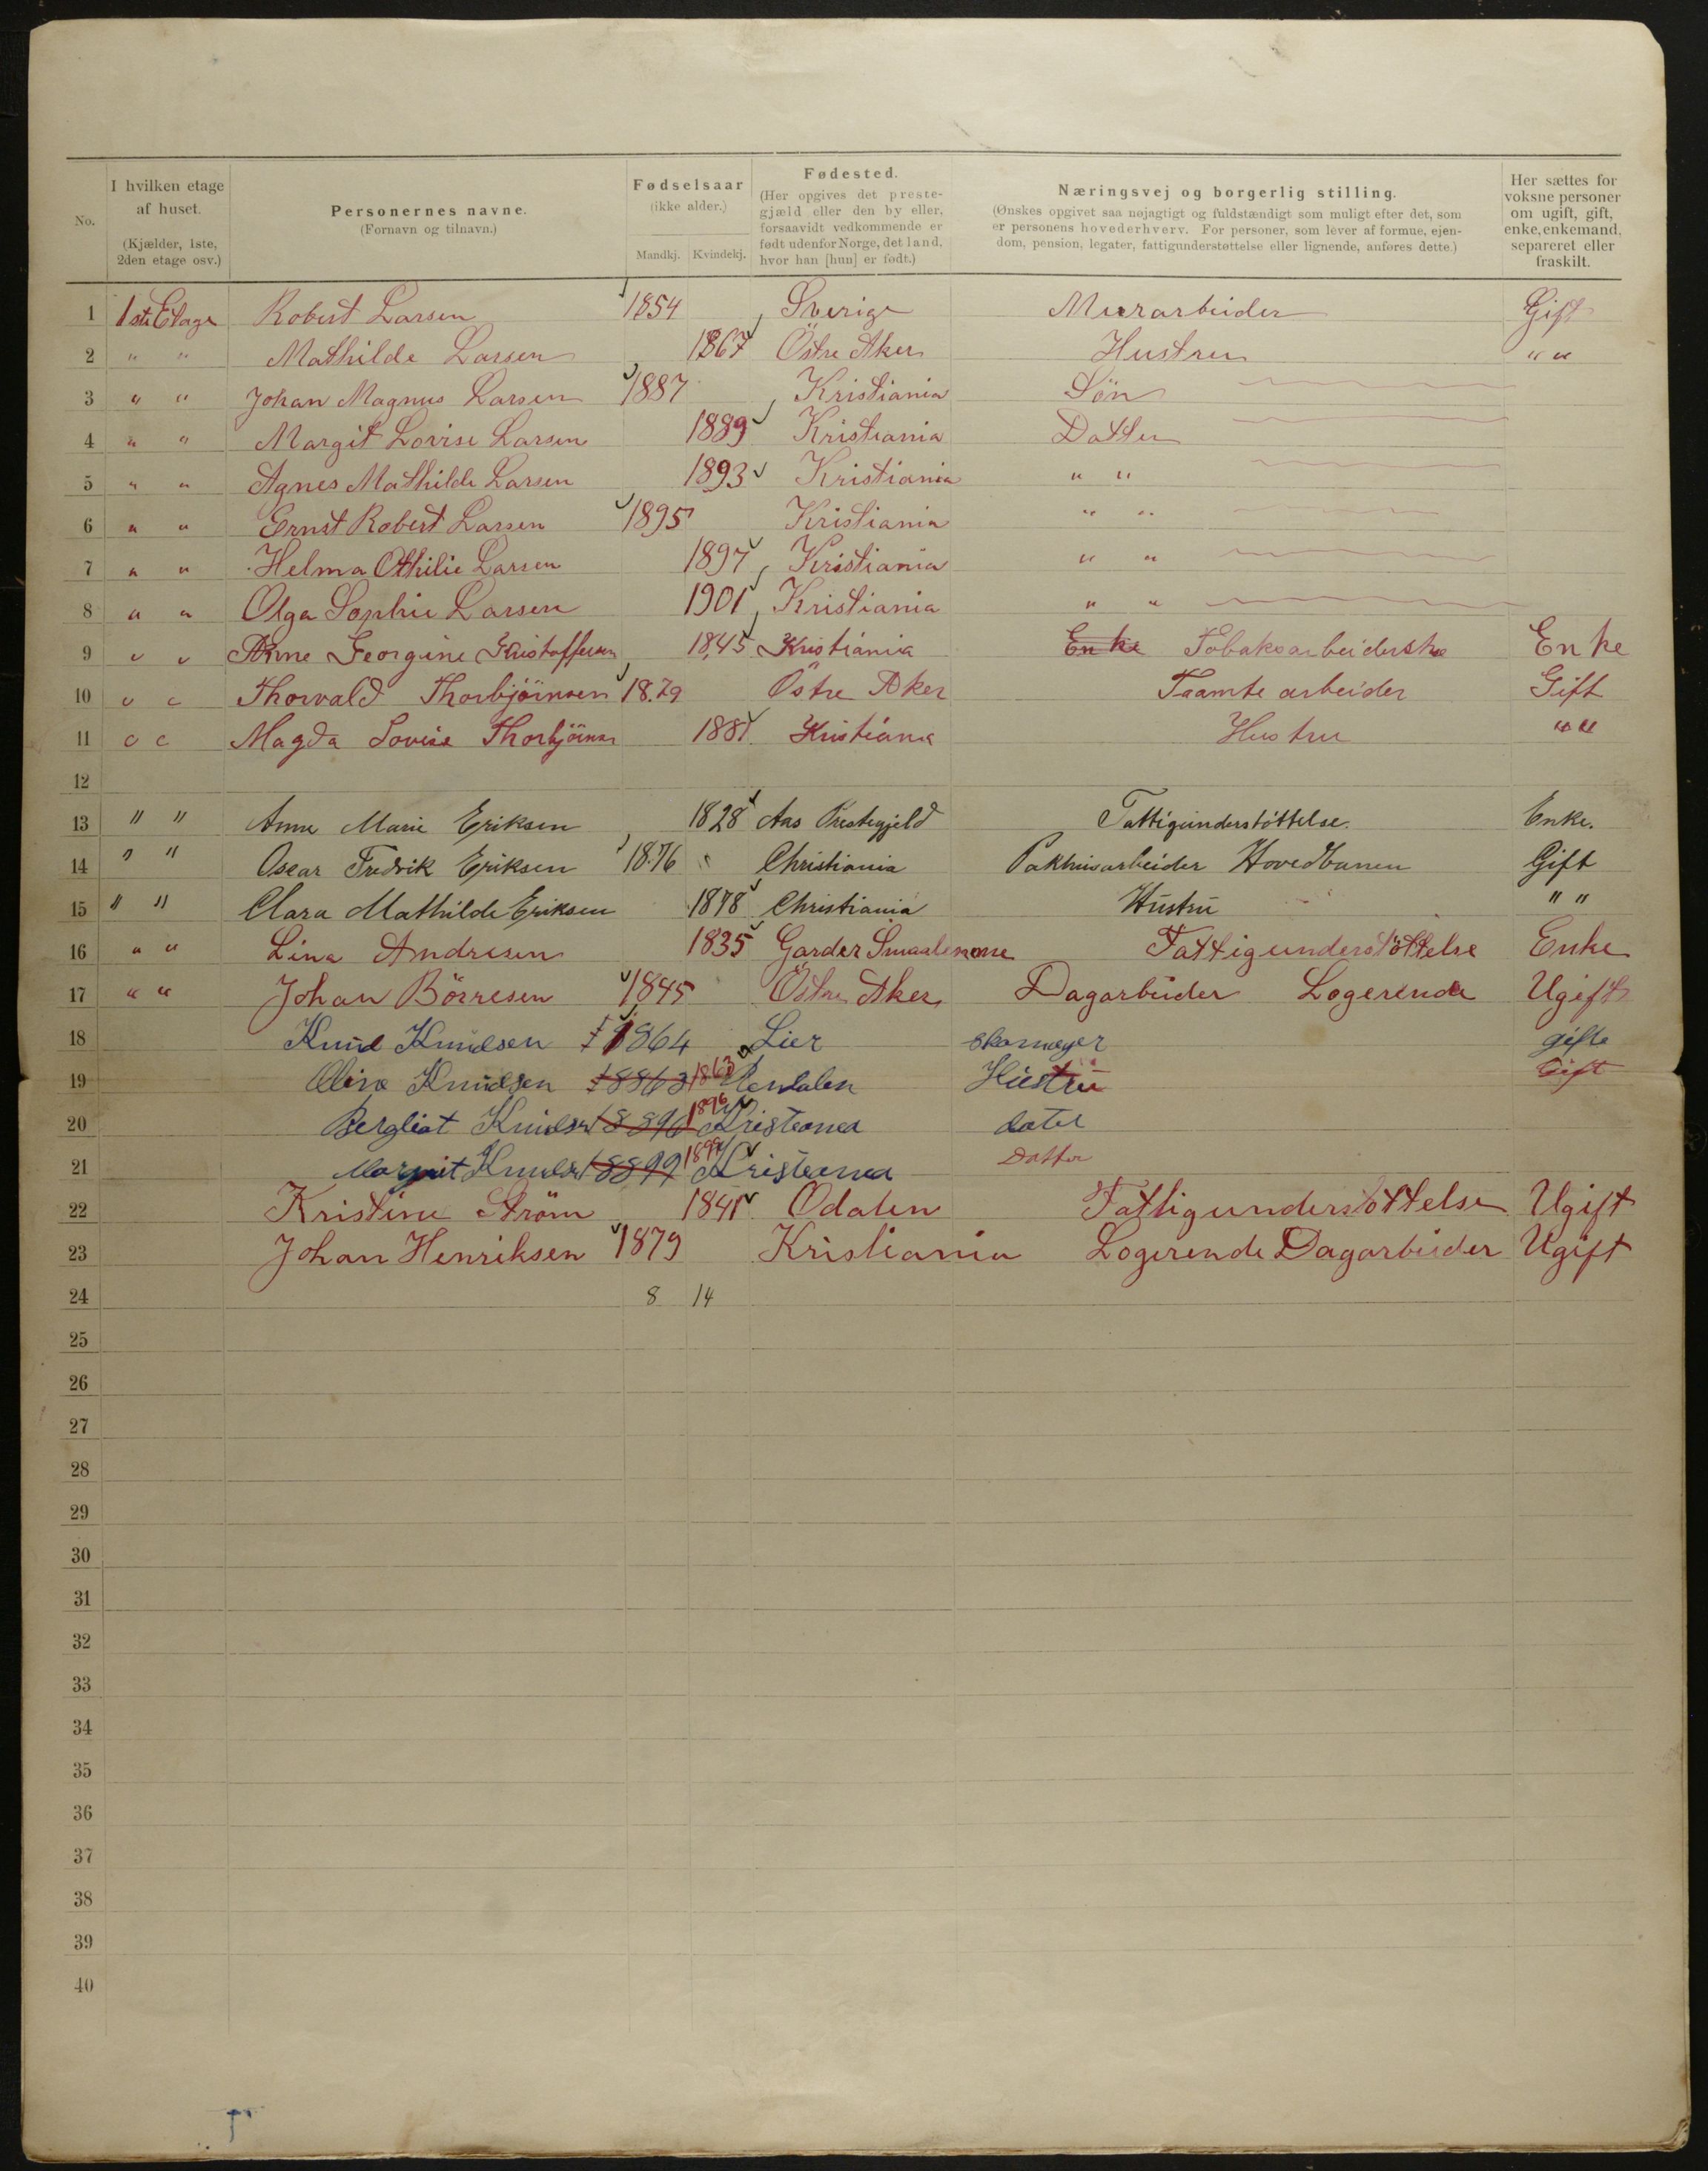 No. I hvilken etage af huset. (Kjælder, 1ste, 2den etage osv.) Personernes navne. (Fornavn og tilnavn.) Fødselsaar (ikke alder.) Mandkj. Kvindekj. Fødested. (Her opgives det prestegjæld eller den by eller, forsaavidt vedkommende er født udenfor Norge, det land, hvor han [hun] er født.) Næringsvej og borgerlig stilling. (Ønskes opgivet saa nøjagtigt og fuldstændigt som muligt efter det, som er personens hovederhverv. For personer, som lever af formue, ejendom, pension, legater, fattigunderstøttelse eller lignende, anføres dette.) Her sættes for voksne personer om ugift, gift, enke, enkemand, separeret eller fraskilt.
1 1ste Etage Robert Larsen 1854 Sverige Murarbeider Gift
2 " " Mathilde Larsen 1867 Östre Aker Hustru " "
3 " " Johan Magnus Larsen 1887 Kristiania Sön
4 " " Margit Lovise Larsen 1889 Kristiania Datter
5 " " Agnes Mathilde Larsen 1893 Kristiania " "
6 " " Ernst Robert Larsen 1895 Kristiania " "
7 " " Helma Othilie Larsen 1897 Kristiania " "
8 " " Olga Sophie Larsen 1901 Kristiania " "
9 " " Anne Georgine Kristoffersen 1845 Kristiania Enke Tobaksarbeiderske Enke
10 " " Thorvald Thorbjörnsen 1879 Östre Aker Taamte arbeider Gift
11 " " Magda Lovise Thorbjörnsen 1881 Kristiania Hustru " "
12
13 " " Anne Marie Eriksen 1828 Aas Prestegjeld Fattigunderstöttelse. Enke.
14 " " Oscar Fredrik Eriksen 1876 " Christiania Pakhusarbeider Hovedbanen Gift
15 " " Clara Mathilde Eriksen 1878 Christiania Hustru " "
16 " " Lina Andresen 1835 Garder Smaalenene Fattigunderstöttelse Enke
17 " " Johan Börresen 1845 Östre Aker Dagarbeider Logerende Ugift
18 Knud Knudsen 1864 Lier skomager gifte
19 Oline Knudsen 18863 1863 Rendalen Hustru Gift
20 Bergliot Knudsen 18896 1896 Kristiania dater
21 Margrit Knudsen 18899 1899 Kristiania Datter
22 Kristine Ström 1841 Odalen Fattigunderstöttelse Ugift
23 Johan Henriksen 1879 Kristiania Logerende Dagarbeider Ugift
24 8 14
25
26
27
28
29
30
31
32
33
34
35
36
37
38
39
40